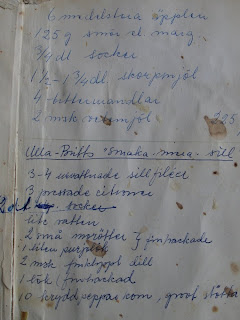 6 medelstora äpplen
125 g smör el. marg.
3/4 dl socker
1 1/2 - 1 3/4 dl skorpmjöl
4 bittermandlar
2 msk vetemjöl 225
Ulla-Britts "smaka-mera-sill
3-4 urvattnade sillfiléer
3 pressade citroner
2 dl socker
lite vatten
2 små morötter } finhackade
1 liten purjolök
2 msk finklippt dill
1 lök finhackad
10 kryddpepparcorn, grovt stötta